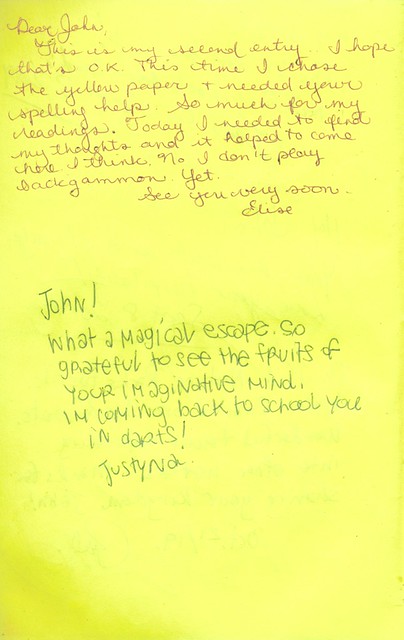 Dear John,
This is my second entry.. I hope
that's O.K. This time I chose
the yellow paper + needed your
spelling help. So much for my
readings. Today I needed to find
my thoughts and it helped to come
here I think. No I don't play
backgammon. Yet.
See you very soon.
Elise
John!
What a magical escape. So
grateful to see the fruits of
your imaginative mind.
I'm coming back to school you
in darts!
Justyna.